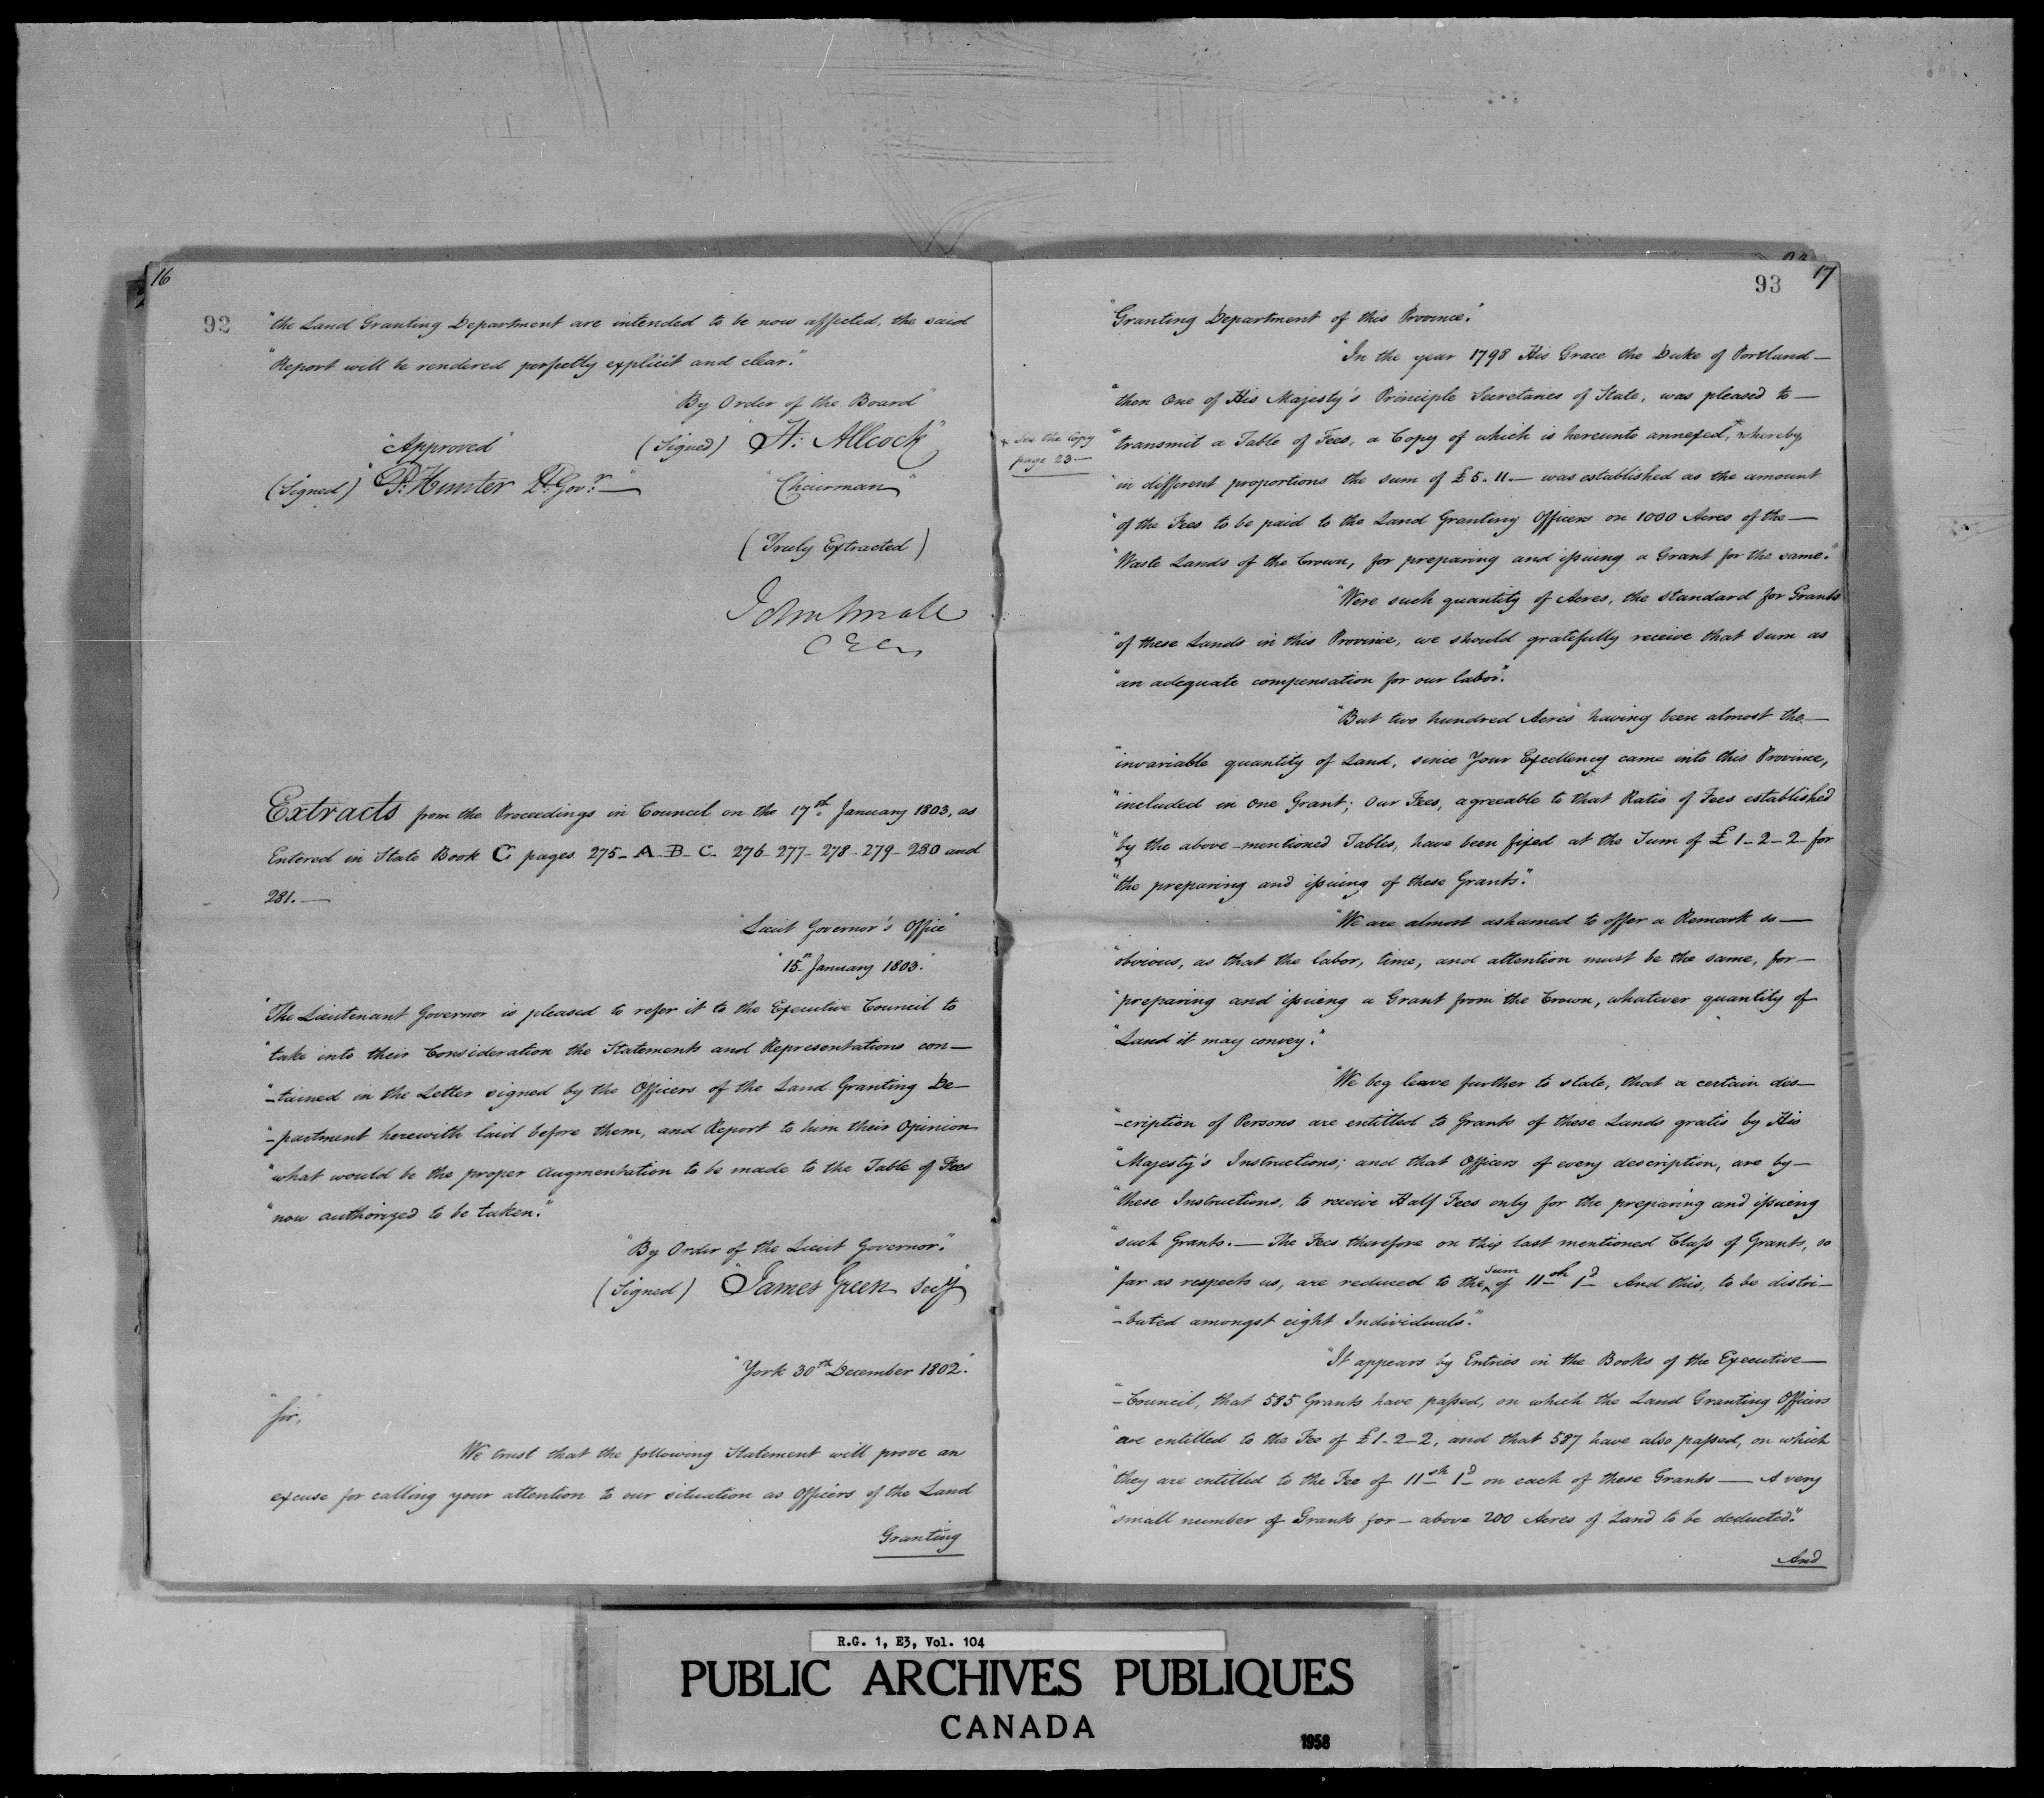 16
92
"the Land Granting Department are intended to be now affected, the said
"Report will be rendered perfectly explicit and clear."
"By Order of the Board"
"Approved" (Signed) "H: Allcock"
(Signed) "P: Hunter Lt. Govr.—" "Chairman"
(Truly Extracted)
John Small
C E C
Extracts from the Proceedings in Council on the 17th January 1803, as
Entered in State Book C pages 275- A- B- C- 276- 277- 278- 279- 280 and
281.—
"Lieut Governor's Office"
"15th January 1803."
"The Lieutenant Governor is pleased to refer it to the Executive Council to
"take into their Consideration the Statements and Representations con—
"-tained in the Letter signed by the Officers of the Land Granting De—
"-partment herewith laid before them, and Report to him their Opinion
"what would be the proper augmentation to be made to the Table of Fees
"now authorized to be taken."
"By Order of the Lieut Governor."
(Signed) "James Green Secy"
"York 30th December 1802."
"Sir,"
We trust that the following Statement will prove an
excuse for calling your attention to our situation as Officers of the Land
Granting
93 17
"Granting Department of this Province."
"In the year 1798 His Grace the Duke of Portland—
"then One of His Majesty's Principle Secretaries of State, was pleased to—
x See the Copy
page 23—
"transmit a Table of Fees, a Copy of which is hereunto annexed,x whereby
"in different proportions the sum of £5. 11.— was established as the amount
"of the Fees to be paid to the Land Granting Officers on 1000 Acres of the—
"Waste Lands of the Crown, for preparing and issuing a Grant for the same."
"Were such quantity of Acres, the standard for Grants
"of these Lands in this Province, we should gratefully receive that Sum as
"an adequate compensation for our labor."
"But two hundred Acres having been almost the—
"invariable quantity of Land, since Your Excellency came into this Province,
"included in one Grant; Our Fees, agreeable to that Ratio of Fees established
"by the above-mentioned Tables, have been fixed at the Sum of £1-2-2 for
"the preparing and issuing of these Grants."
"We are almost ashamed to offer a Remark so—
"obvious, as that the labor, time, and attention must be the same, for—
"preparing and issuing a Grant from the Crown, whatever quantity of
"Land it may convey."
"We beg leave further to state, that a certain des—
"-cription of Persons are entitled to Grants of these Lands gratis by His
"Majesty's Instructions; and that Officers of every description, are by—
"these Instructions, to receive Half Fees only for the preparing and issuing
"such Grants.— The Fees therefore on this last mentioned Class of Grants, so
"far as respects us, are reduced to the Sum of 11sh 1d And this, to be distri—
"-buted amongst eight Individuals."
"It appears by Entries in the Books of the Executive—
"-Council, that 585 Grants have passed, on which the Land Granting Officers
"are entitled to the Fee of £1-2-2, and that 587 have also passed, on which
"they are entitled to the Fee of 11sh 1d on each of these Grants — A very
"small number of Grants for— above 200 Acres of Land to be deducted."
And
R.G. 1, E3, Vol. 104
PUBLIC ARCHIVES PUBLIQUES
CANADA
1958